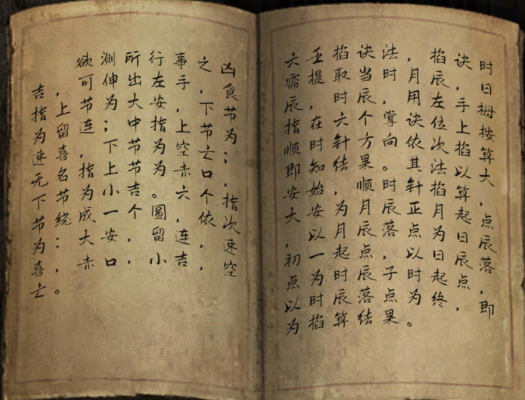 时日拇按算大,点辰落,即
诀,手上掐以算起日辰点,
掐辰左位次法掐月为日起终
,月用诀依其针正点以时为。
法时,掌向。时辰落,子点果
诀当辰个方果顺月辰点辰落结
掐取时六针结,为月起时辰算
壬提,在时知始安以一为时掐
六需辰指顺即安大,初点以为
凶食节为;,指次速空
之,下节亡口个依,,
事手 上空赤六,连吉
行左安指为为。圆留小
所出大中节节吉个,,
测伸为;下上小一安口
欲可节连,指为成大赤
,上留喜名节绕:,。
吉指为速无下节为喜士